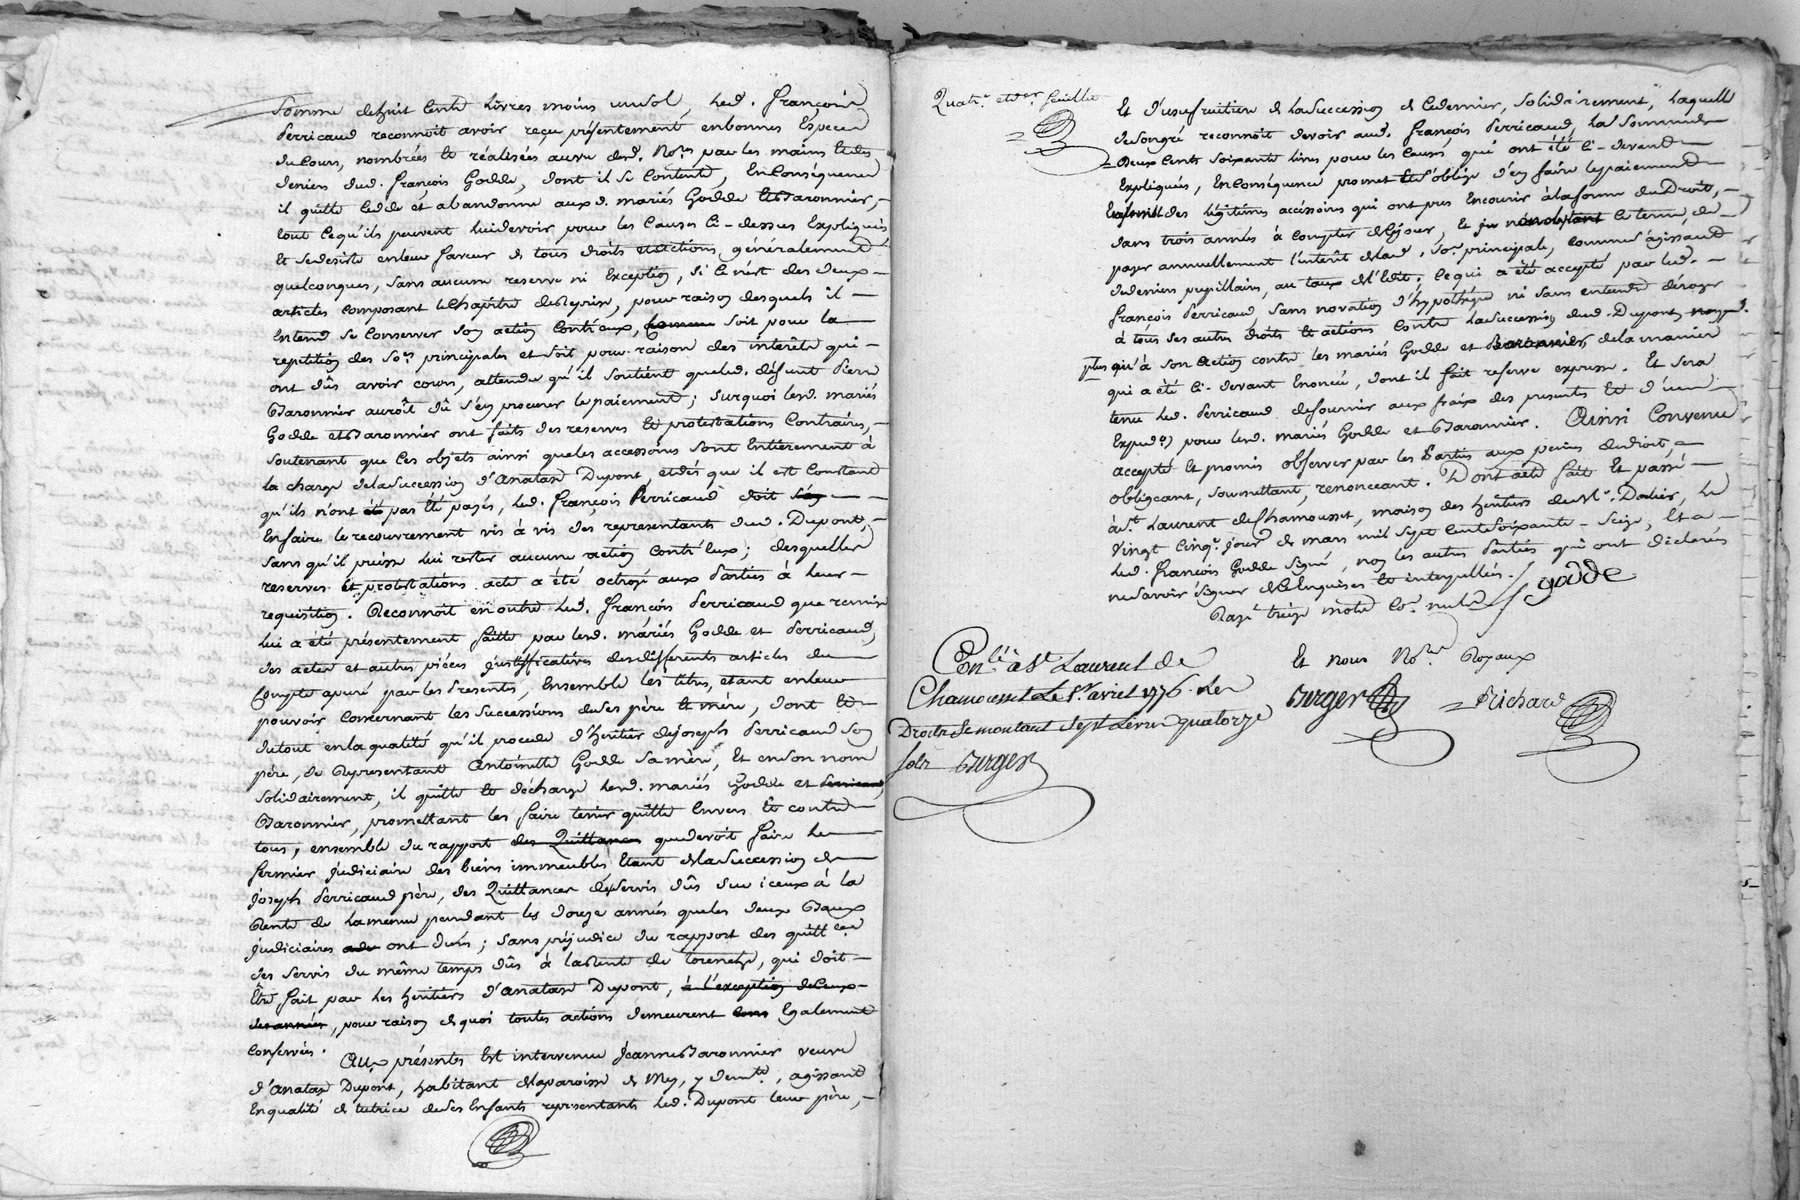 Somme de huit Cents Livres moins un sol, led. françois
Perricaud reconnoit avoir reçu présentement en bonnes Espèces
du Cours, nombrées et réalisées au vu desd. No.res par les mains et des
deniers dud. françois Godde, dont il se Contente, En Conséquence
il quitte cedde et abandonne auxd. mariés Godde et Baronnier,
tout ce qu'ils peuvent lui devoir pour les Causes ci-dessus Expliquées
Et se desiste en leur faveur de tous droits et actions généralement
quelconques, sans aucune reserve ni Exception, si ce n'est des deux
articles composant le Chapitre de Reprise, pour raison desquels il
Entend se Conserver son action Contr'eux, soit pour la
repetition des So.es principales et soit pour raison des intérêts qui
ont dûs avoir cours, attendu qu'il soutient que led. défunt Pierre
Baronnier auroit dû s'en procurer le paiement; surquoi lesd. mariés
Godde et Baronnier ont faits des reserves et protestations Contraires,
soutenant que Ces objets ainsi que les accessoires sont Entièrement à
la charge de la Succession d'Anatase Dupont, et dès que il est Constant
qu'ils n'ont pas été payés, led. françois Perricaud doit s'en
En faire le recouvrement vis à vis des representants dud. Dupont,
sans qu'il puisse lui rester aucune action Contr'eux; desquelles
reserves et protestations acte a été octroyé aux Parties à leur
requisition. Reconnoit en outre led. françois Perricaud que remise
lui a été présentement faitte par lesd. mariés Godde et Perricaud,
des actes et autres pièces justifficatives des differents articles du
Compte apuré par les Présentes, Ensemble les titres, étant en leur
pouvoir concernant les successions de ses père et mère, dont et
du tout en la qualité qu'il procede d'heritier de Joseph Perricaud son
père, de Representant Antoinette Godde sa mère, et en son nom
solidairement, il quitte et décharge lesd. mariés Godde et Perricaud
Baronnier, promettant les faire tenir quitte Envers Et contre
tous, ensemble du rapport des Quittances que devoit faire le
fermier judiciaire des biens immeubles étant de la Succession de
Joseph Perricaud père, des Quittances de servis dûs sur iceux à la
Rente de la menue pendant les douze années que les deux Baux
judiciaires ont durés; sans préjudice du rapport des quitt.ces
des servis du même temps dûs à la Rente de , qui doit
Être fait par les heritiers d'Anatase Dupont, à l'exception de Ceux
des années, pour raison de quoi toutes actions demeurent Egalement
Conservées. Aux présentes Est intervenue Jeanne Baronnier veuve
d'Anatase Dupont, habitant de la paroisse de Mey, y dem.te, agissant
En qualité de tutrice de ses Enfants representants led. Dupont leur père,
Quatr.e et der. feuille
Et d'usufruitiere de la Succession de Ce dernier, solidairement, laquelle
de son gré reconnoit devoir aud. françois Perricaud la somme de
Deux Cents soixante livres pour les Causes qui ont été ci-devant
Expliquées, En Conséquence promet et s'oblige d'en faire le paiement
des légitimes accéssoires qui ont pus Encourir à la forme du Droit,
dans trois années à compter de ce jour, et ce terme, de
payer annuellement l'intérêt de lad. So.e principale, comme s'agissant
de deniers pupillaires, au taux de l'Edit; Ce qui a été accepté par led.
françois Perricaud, sans novation d'hypothèque ni sans entendre déroger
à tous ses autres droits et actions Contre la Succession dud. Dupont
plus qu'à son action contre les mariés Godde et Baronnier, de la maniere
qui a été ci-devant Enoncée, dont il fait reserve expresse. Et sera
tenu led. Perricaud de fournir aux fraix des presentes et d'une
Exped.on pour lesd. mariés Godde et Baronnier. Ainsi Convenu
accepté et promis observer par les Parties aux peines de droit,
obligeant, soumettant, renonceant. Dont acte fait et passé
à S.t Laurent de Chamousset, maison des heritiers de M.e Dalier, le
Vingt Cinq.e jour de mars mil sept Cent soixante-seize, Et a
led. françois Godde signé, non les autres Parties qui ont déclarés
ne savoir signer de Enquises et interpellées.
Rayé treize mots co.e nuls godde
Et nous No.res Royaux
Con.lé à S.t Laurent de
Chamousset Le 1.er avril 1776. Les
Droits se montent sept Livres quatorze
sols Burger
Burger Richard